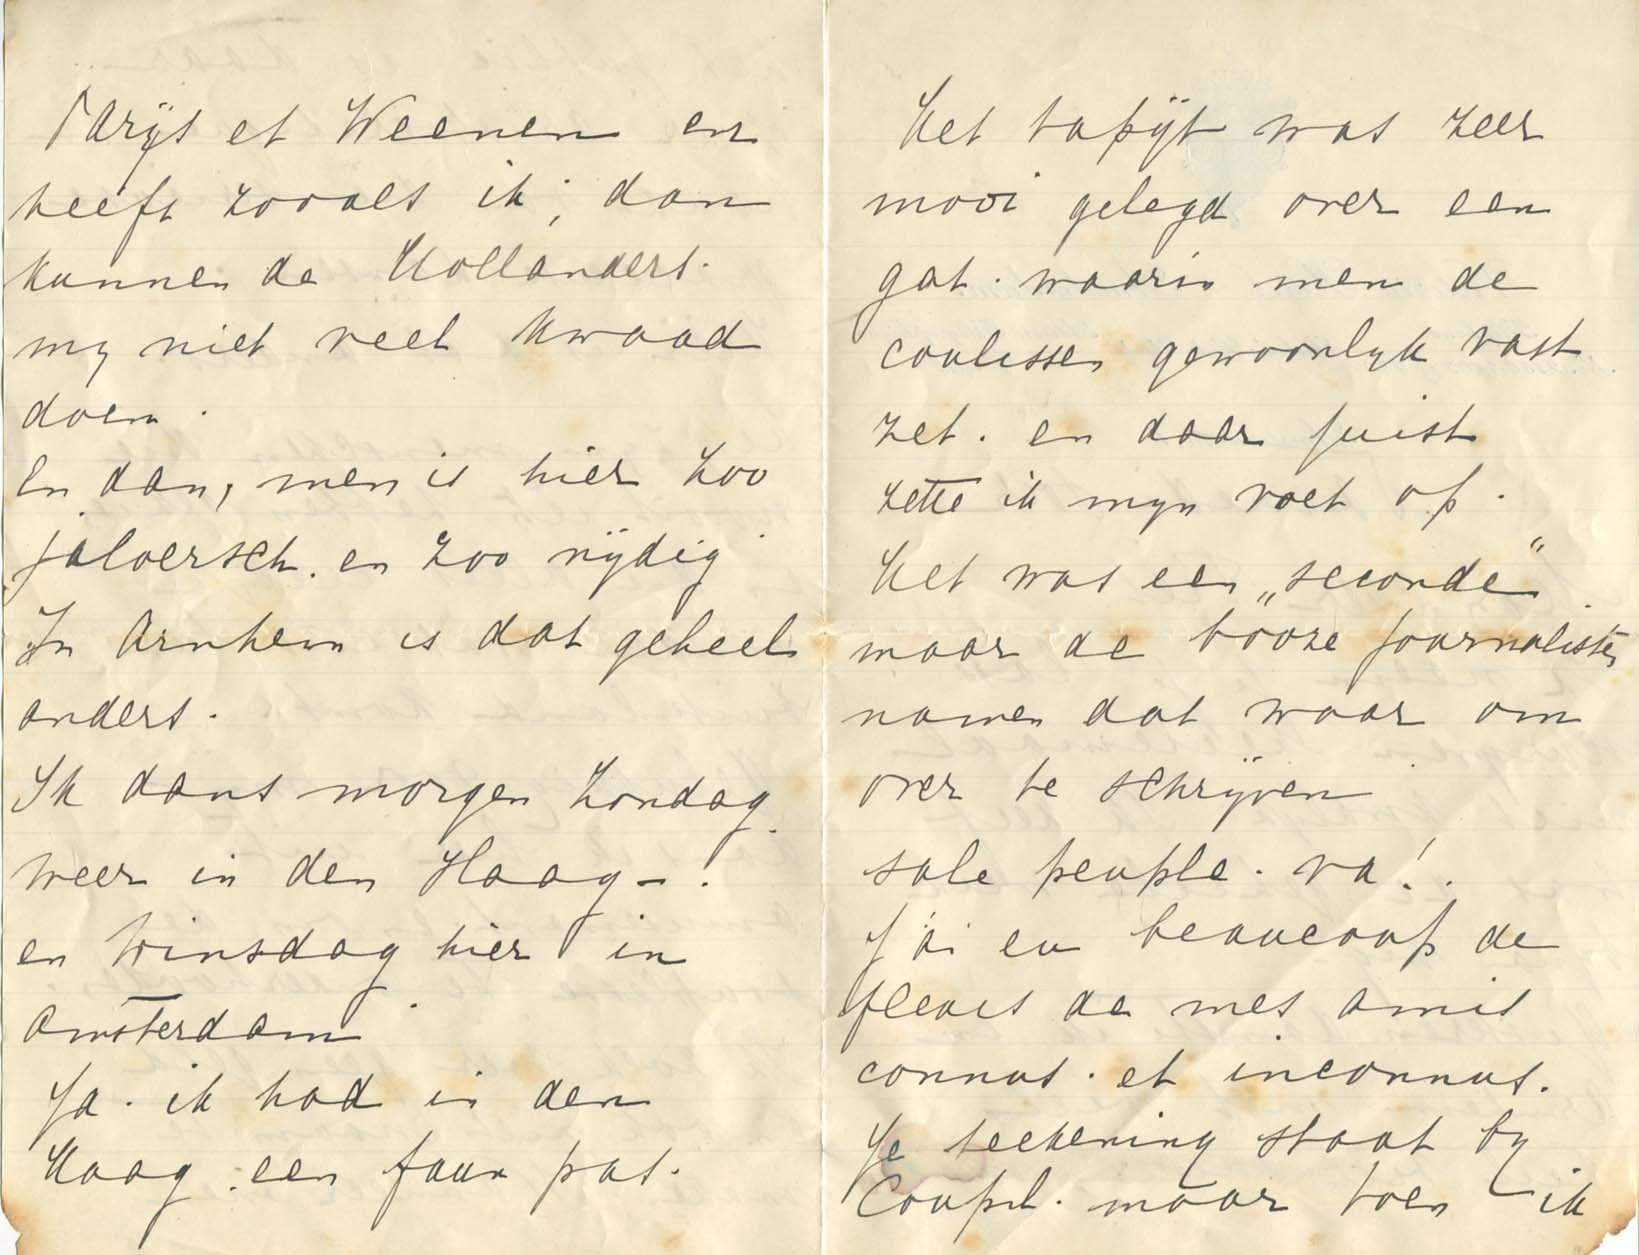 Parijs et Weenen en
heeft zooals ik, dan
kunnen de Hollanders.
my niet veel kwaad
doen.
En dan, men is hier zoo
jaloersch. en zoo nijdig
In Arnhem is dat geheel
anders.
Ik dans morgen Zondag
weer in den Haag -.
en Winsdag hier in
Amsterdam
Ja. ik had in den
Haag een faux pas.
Het tapijt was zeer
mooi gelegd over een
gat. waarin men de
coulissen gewoonlyk vast
zet. en daar juist
zette ik myn voet op.
Het was een „seconde"
maar de booze journalisten
namen dat waar om
over te schrijven
sale peuple. va!.
J'ai eu beaucoup de
fleurs de mes amis
connus. et inconnus.
Je teekening staat by
Goupil. maar toen ik